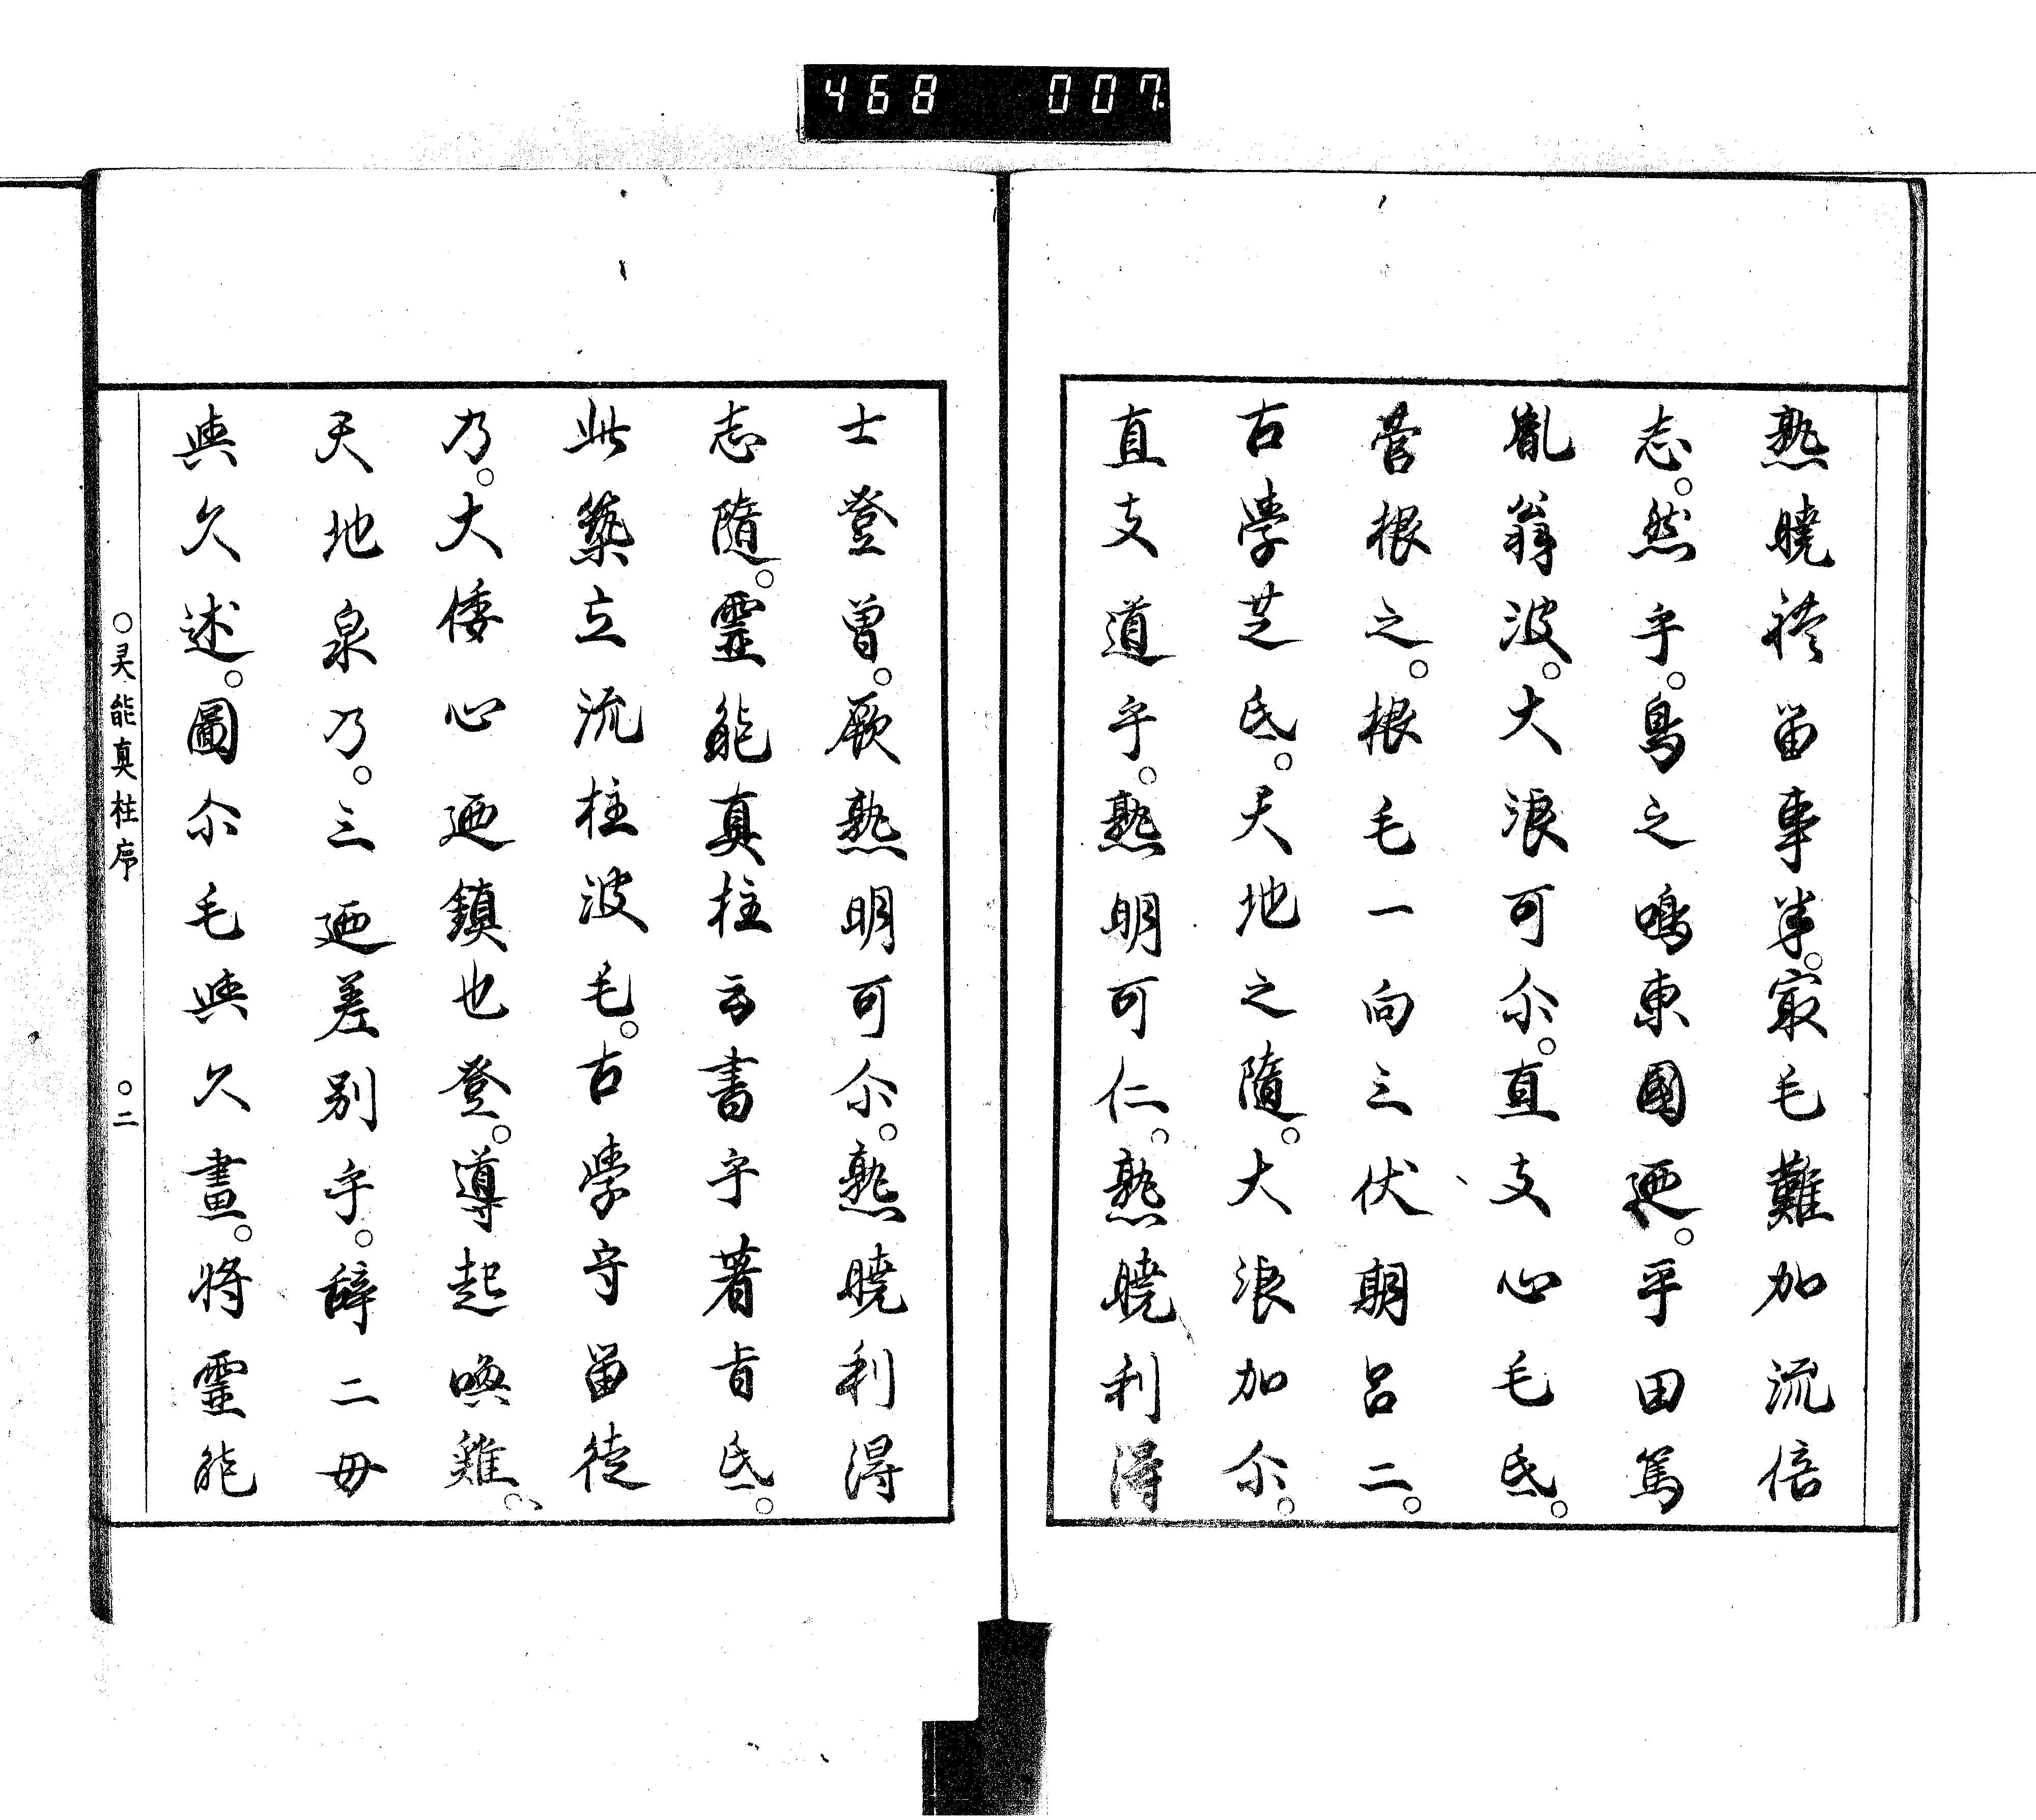 468 007
熟曉裃畱事半。最毛難加流倍
志。然乎。鳥之鳴東國迺。平田篤
胤翁波。大浪可尒。直支心毛氐。
菅根之。根毛一向三伏期呂二。
古學芝氐。天地之隨。大浪加尒。
直支道乎。熟明可仁。熟曉利得
士登曽。厥熟明可尒。熟曉利得
志隨。靈能真柱云書乎著旹氐。
此築立流柱波毛。古學守畱徒
乃。大倭心迺鎮也登。導起喚雞。
天地泉乃。三迺差別乎。辭二毋
與久述。圖尒毛與久畫。將靈能
○灵能真柱序 ○二